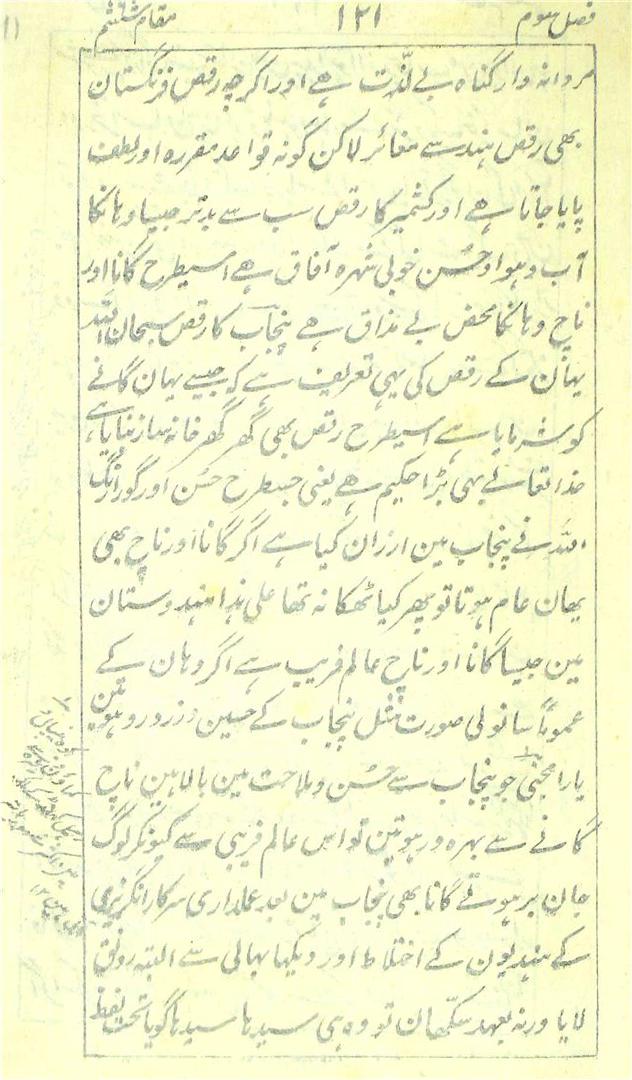 فصل سوم ۱۲۱ مقام ششم
مردانہ وار گناہ بے لذّت ہے اور اگرچہ رقص فرنگستان
بھی رقص ہند سے مغائر لاکن گونہ قواعد مقررہ اور لطف
پایا جاتا ہے اور کشمیر کا رقص سب سے بدتر جیسا وہانکا
آب و ہوا و حُسن خوبی شہرہ آفاق ہے اسیطرح گانا اور
ناچ وہانکا محض بے مذاق ہے پنجاب کا رقص سبحان اللہ
یہان کے رقص کی یہی تعریف ہے کہ جیسے یہان گانے
کو شرمایا ہے اسیطرح رقص بھی گھر گھر خانہ ساز بنایا ہے
خدا تعالے بہی بڑا حکیم ہے یعنی جسطرح حسُن اور گورا رنگ
اللہ نے پنجاب مین ارزان کیا ہے اگر گانا اور ناچ بھی
یھان عام ہوتا تو پھر کیا ٹھکانہ تھا علی ہذا ہندوستان
مین جیسا گانا اور ناچ عالم فریب ہے اگر وہان کے
عموماً سانولی صورت مثل پنجاب کے حسین و زرد رو ہوتین
یا رامجنی جو پنجاب سے حُسن و ملاحت مین بالا ہین ناچ
گانے سے بہرہ ور ہوتین تو اس عالم فریبی سے کیونکر لوگ
جان بر ہوتے گانا بھی پنجاب مین بعد عملداری سرکار انگریزی
کے ہندیون کے اختلاط اور دیکھا بھالی سے البتہ رونق
لایا ورنہ بعہد سکّھان تو وہ ہی سیدہا سیدہا گویا تحت لفظ